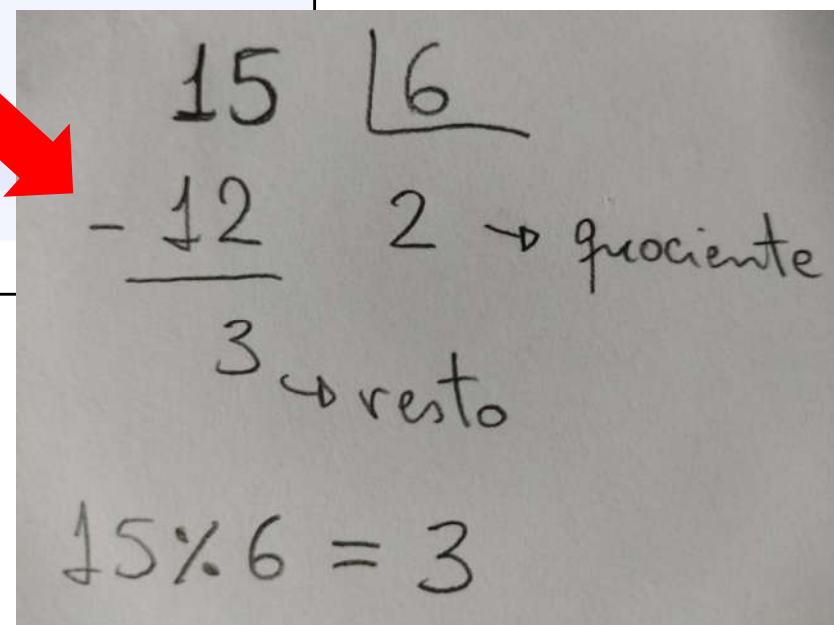 15 6
- 12 2 → quociente
3 ↪ resto
15% 6 = 3